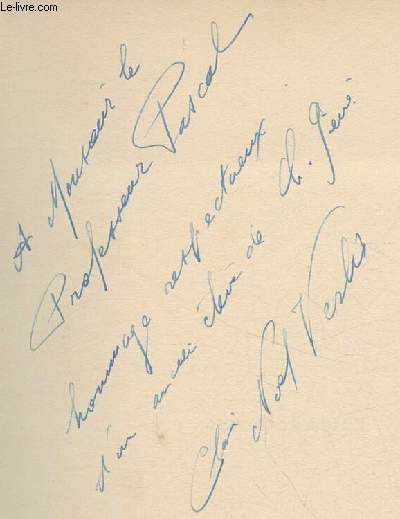 Le-livre.com
A Monsieur le
Professeur Pascal
hommage respectueux
d'un ancien élève de Ch.
Noël Verlo